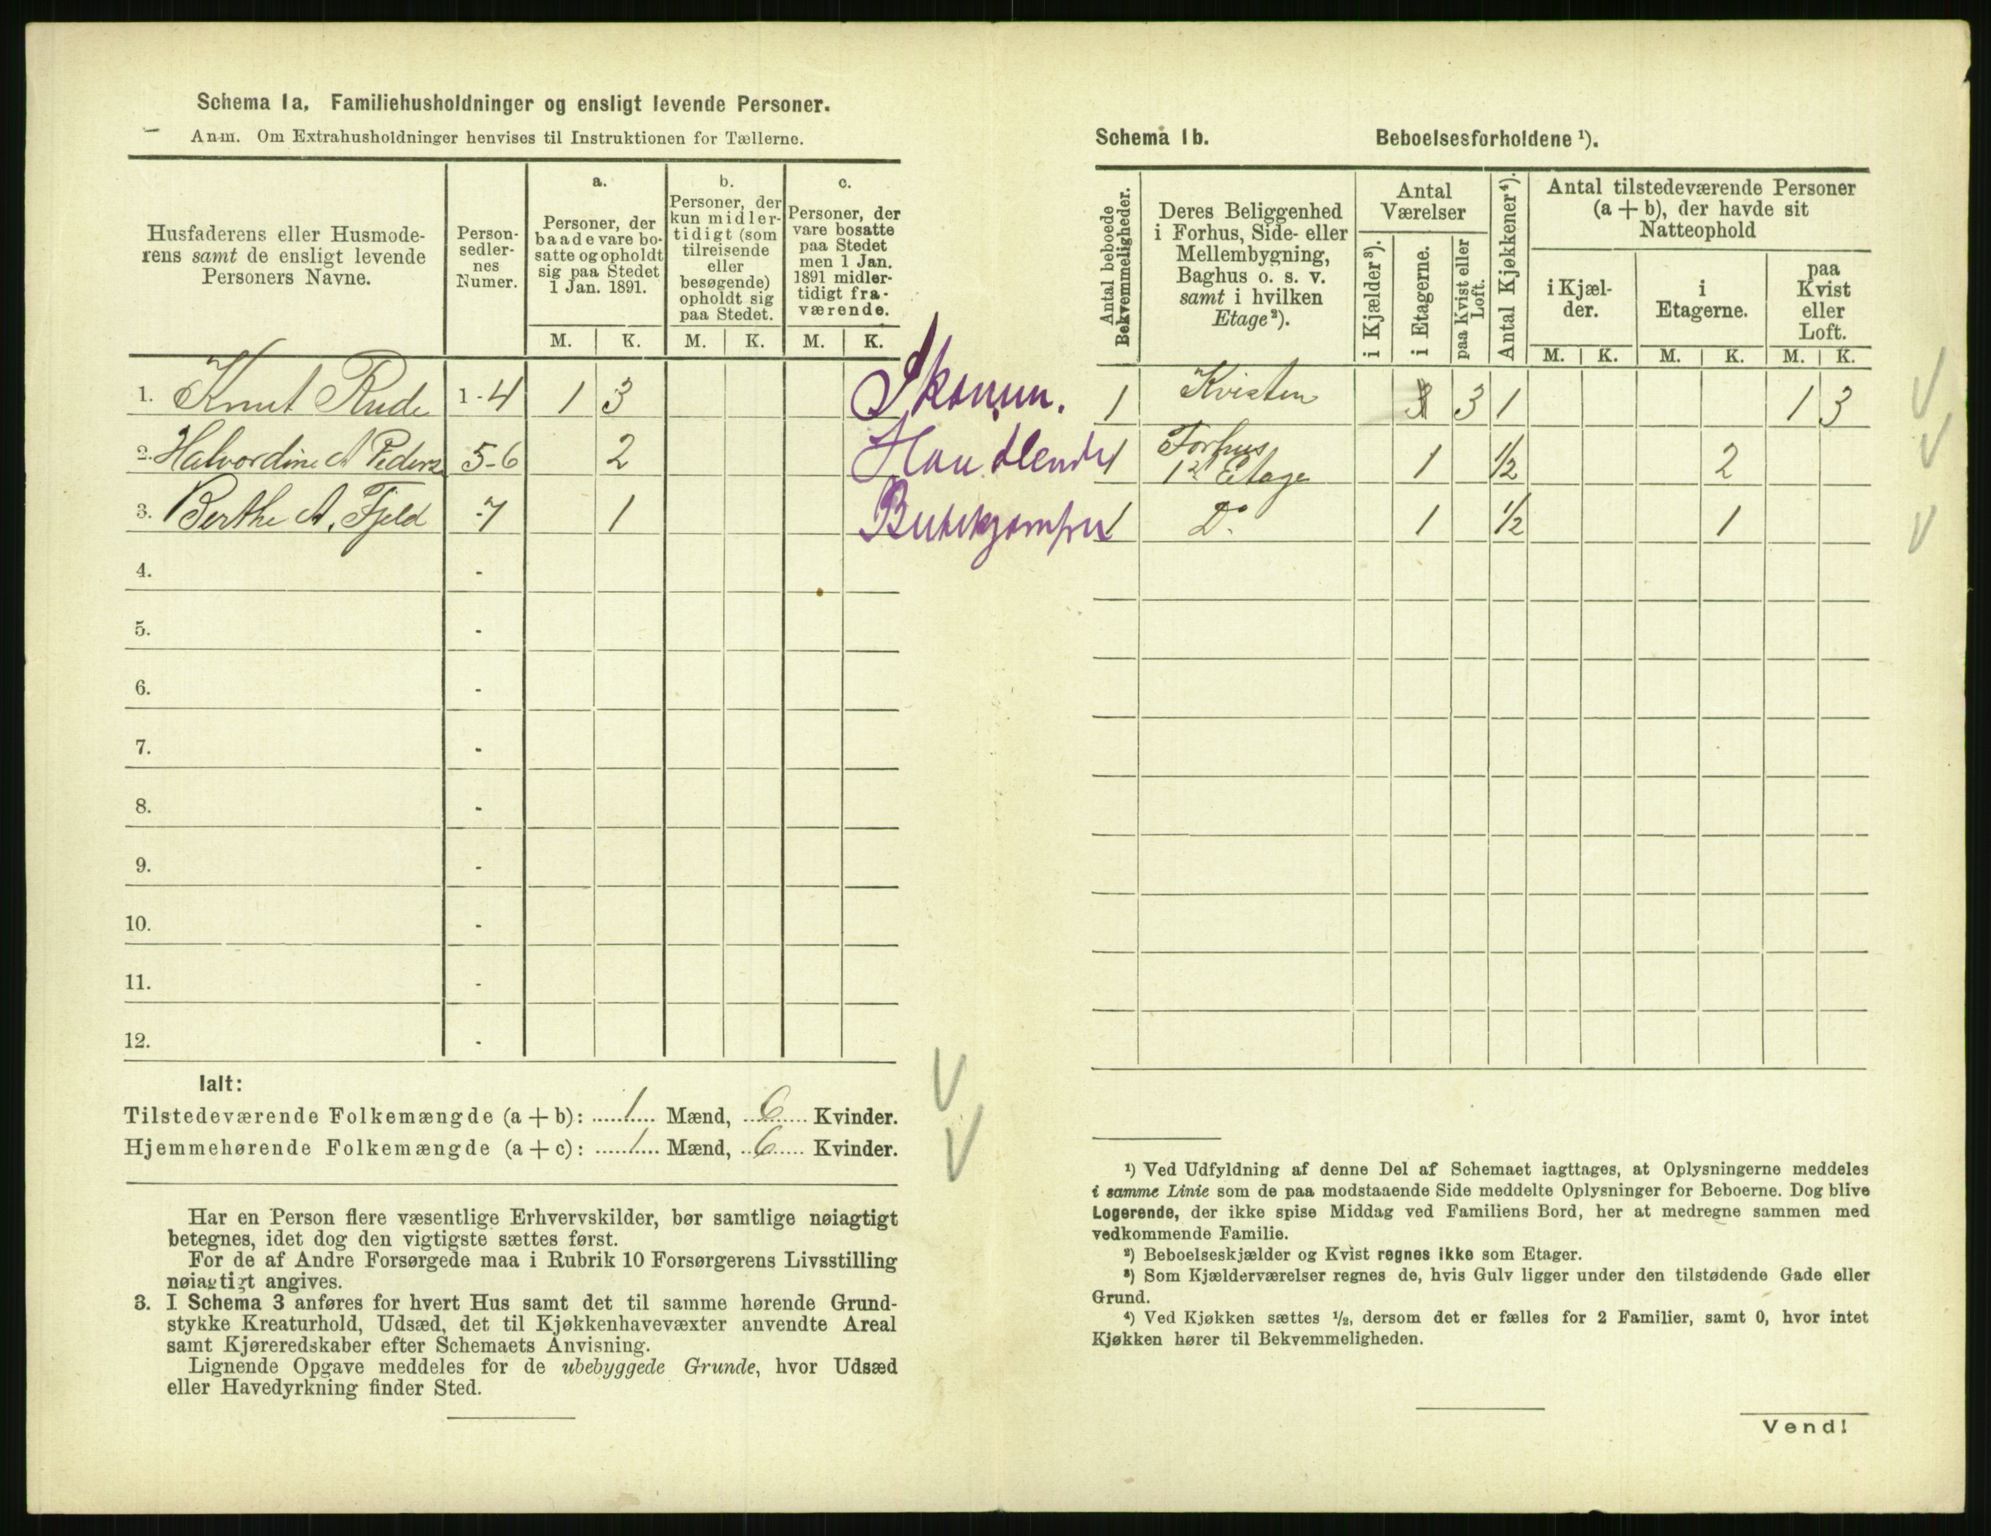 Schema 1a. Familiehusholdninger og ensligt levende Personer.
Anm. Om Extrahusholdninger henvises til Instruktionen for Tællerne.
Husfaderens eller Husmoderens samt de ensligt levende Personers Navne.
Personsedlernes Numer.
a.
Personer, der baade vare bosatte og opholdt sig paa Stedet 1 Jan. 1891.
b.
Personer, der kun midlertidigt (som tilreisende eller besøgende) opholdt sig paa Stedet.
c.
Personer, der vare bosatte paa Stedet men 1 Jan. 1891 midlertidigt fraværende.
M. K. M. K. M. K.
1. Knut Rude 1-4 1 3 Skomm.
2. Halvordine A Peders 5-6 2 Handlende
3. Berthe A. Fjeld -7 1 Butikjomfru
4. -
5. -
6. -
7. -
8. -
9. -
10. -
11. -
12. -
Ialt:
Tilstedeværende Folkemængde (a + b): 1 Mænd, 6 Kvinder.
Hjemmehørende Folkemængde (a + c): 1 Mænd, 6 Kvinder.
Har en Person flere væsentlige Erhvervskilder, bør samtlige nøiagtigt
betegnes, idet dog den vigtigste sættes først.
For de af Andre Forsørgede maa i Rubrik 10 Forsørgerens Livsstilling
nøiagtigt angives.
3. I Schema 3 anføres for hvert Hus samt det til samme hørende Grund-
stykke Kreaturhold, Udsæd, det til Kjøkkenhavevæxter anvendte Areal
samt Kjøreredskaber efter Schemaets Anvisning.
Lignende Opgave meddeles for de ubebyggede Grunde, hvor Udsæd
eller Havedyrkning finder Sted.
Schema 1b. Beboelsesforholdene ¹).
Antal beboede Bekvemmeligheder.
Deres Beliggenhed i Forhus, Side- eller Mellembygning, Baghus o. s. v. samt i hvilken Etage²).
Antal Værelser
i Kjælder³).
i Etagerne.
paa Kvist eller Loft.
Antal Kjøkkener⁴).
Antal tilstedeværende Personer
(a + b), der havde sit
Natteophold
i Kjælder.
i Etagerne.
paa Kvist eller Loft.
M. K. M. K. M. K.
1 Kvisten 3 3 1 1 3
1 Forhus 1ste Etage 1 1/2 2
1 Do 1 1/2 1
¹) Ved Udfyldning af denne Del af Schemaet iagttages, at Oplysningerne meddeles
i samme Linie som de paa modstaaende Side meddelte Oplysninger for Beboerne. Dog blive
Logerende, der ikke spise Middag ved Familiens Bord, her at medregne sammen med
vedkommende Familie.
²) Beboelseskjælder og Kvist regnes ikke som Etager.
³) Som Kjælderværelser regnes de, hvis Gulv ligger under den tilstødende Gade eller
Grund.
⁴) Ved Kjøkken sættes ½, dersom det er fælles for 2 Familier, samt 0, hvor intet
Kjøkken hører til Bekvemmeligheden.
Vend!